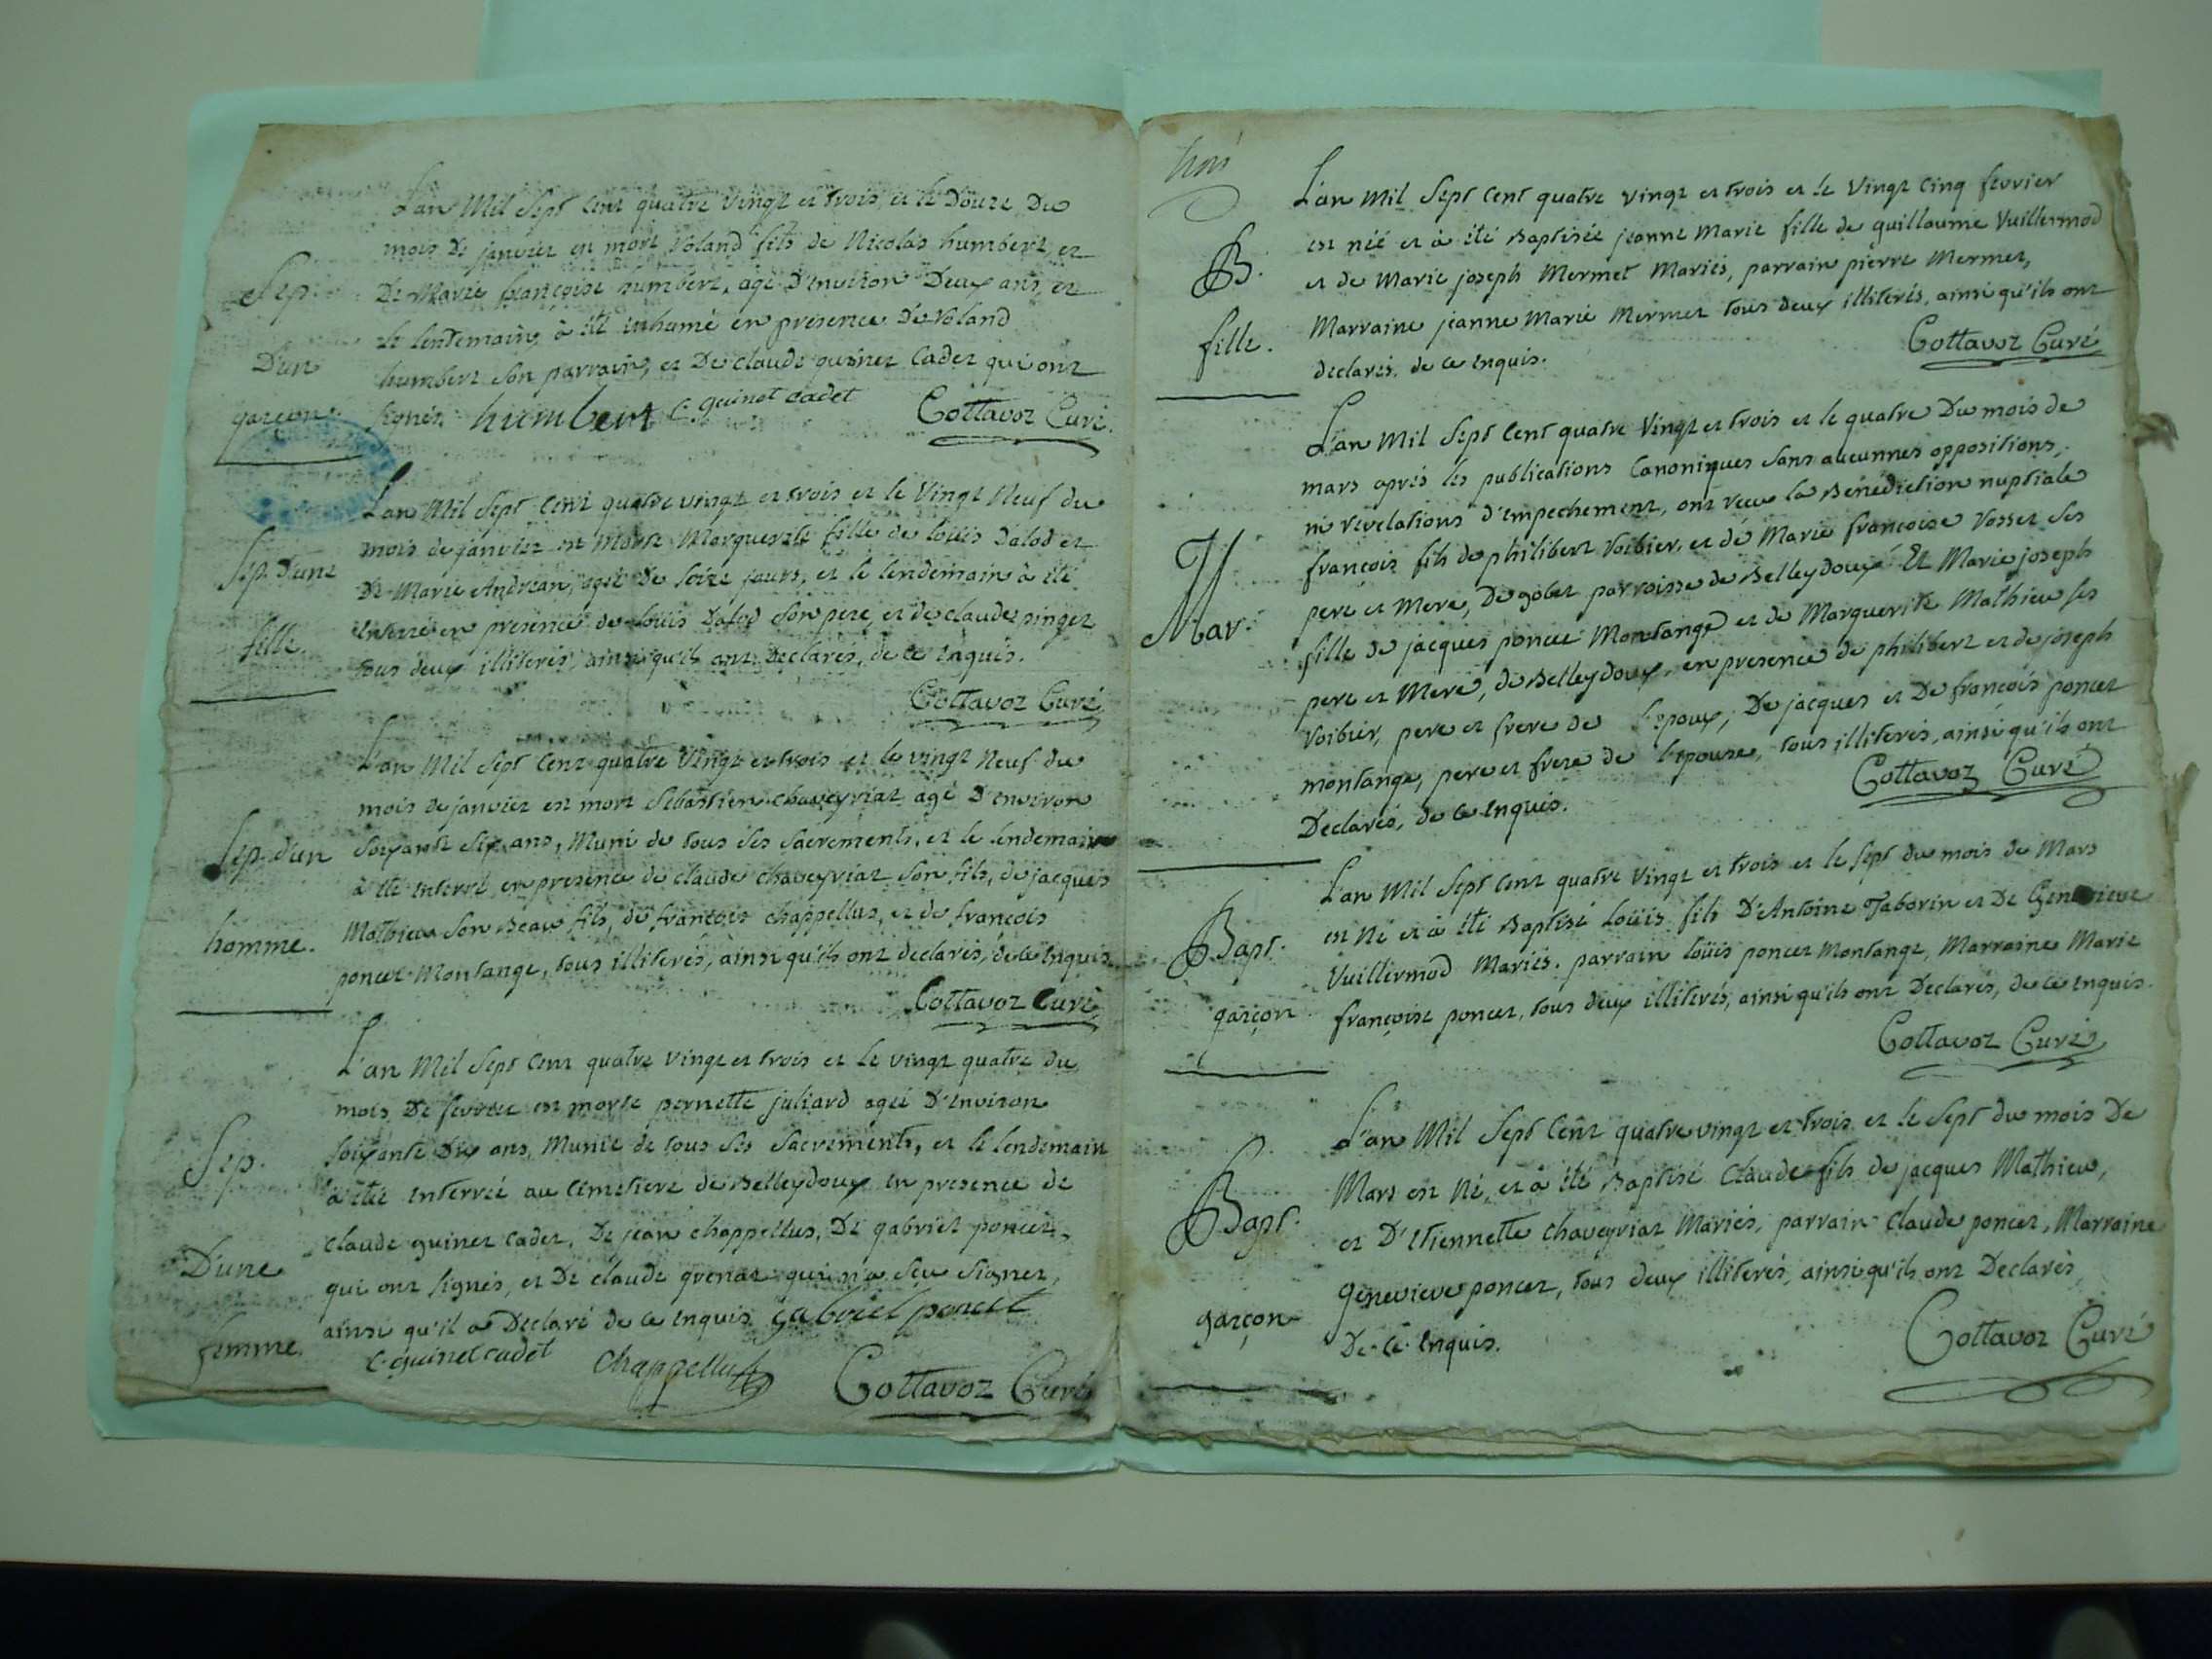 Sep.
D'un
garçon.
L'an Mil Sept Cent quatre Vingt et trois, et le Douze Du
mois De janvier est mort Roland fils de Nicolas humbert, et
De Marie françoise humbert, agé d'environ Deux ans, et
le lendemain à été inhumé en presence De Roland
humbert Son parrain, et De claude guinet Cadet qui ont
signés. humbert C. guinet cadet Cottavoz Curé.
Sep. D'une
fille.
L'an Mil Sept Cent quatre vingt et trois et le Vingt Neuf du
mois de janvier est Morte Marguerite fille de loüis Dalod et
De Marie Andréan, agée De Seize jours, et le lendemain à été
enterrée en presence de loüis Dalod Son pere, et de claude pinget
tous deux illiterés, ainsi qu'ils ont Declarés, de ce enquis.
Cottavoz Curé
Sep. d'un
homme.
L'an Mil Sept Cent quatre Vingt et trois et le vingt Neuf du
mois de janvier est mort Sebastien chaveyriat agé d'environ
Soixante Six ans, Muni de tous Ses Sacrements, et le lendemain
à été enterré en presence de claude chaveyriat Son fils, de jacques
Mathieu Son Beau fils, de francois chappellus, et de françois
poncet Montange, tous illiterés, ainsi qu'ils ont declarés, de ce enquis.
Cottavoz Curé
Sep.
D'une
femme.
L'an Mil Sept Cent quatre vingt et trois et le vingt quatre du
mois De fevrier est morte pernette juliard agée D'environ
Soixante Dix ans, Munie de tous Ses Sacrements, et le lendemain
à été enterrée au Cimetiere de Belleydoux en presence de
claude guinet cadet, De jean chappellus, De gabriel poncet,
qui ont Signés, et De claude grenat qui n'a Sçu Signer,
ainsi qu'il a Declaré de ce enquis gabriel poncet
C. guinet cadet Chappellus Cottavoz Curé
trois
B.
fille.
L'an Mil Sept Cent quatre vingt et trois et le Vingt Cinq fevrier
est née et à été Baptisée jeanne Marie fille de guillaume Vuillermod
et de Marie joseph Mermet Mariés, parrain pierre Mermet,
Marraine jeanne Marie Mermet tous deux illiterés, ainsi qu'ils ont
declarés, de ce enquis. Cottavoz Curé
Mar.
L'an Mil Sept Cent quatre Vingt et trois et le quatre Du mois de
mars après les publications Canoniques Sans aucunnes oppositions,
ni revelations d'empechement, ont reçu la Benédiction nuptiale
francois fils de philibert Voibier, et de Marie françoise Rosset Ses
pere et Mere, De gobet parroisse de Belleydoux. Et Marie joseph
fille de jacques poncet Montange et de Marguerite Mathieu Ses
pere et Mere, de Belleydoux, en presence de philibert et de joseph
Voibier, pere et frere de l'epoux, De jacques et De francois poncet
montange, pere et frere de l'epouse, tous illiterés, ainsi qu'ils ont
Declarés, de ce enquis. Cottavoz Curé
Bapt.
garçon.
L'an Mil Sept Cent quatre Vingt et trois et le Sept du mois de Mars
est Né et à été Baptisé Loüis fils D'Antoine Taborin et De Genevieve
Vuillermod Mariés. parrain loüis poncet Montange, Marraine Marie
françoise poncet, tous deux illiterés, ainsi qu'ils ont Declarés, de ce enquis.
Cottavoz Curé
Bapt.
garçon
L'an Mil Sept Cent quatre vingt et trois et le Sept du mois De
Mars est Né, et à été Baptisé Claude fils de jacques Mathieu,
et D'etiennette chaveyriat Mariés, parrain claude poncet, Marraine
Genevieve poncet, tous deux illiterés, ainsi qu'ils ont Declarés
De ce enquis. Cottavoz Curé